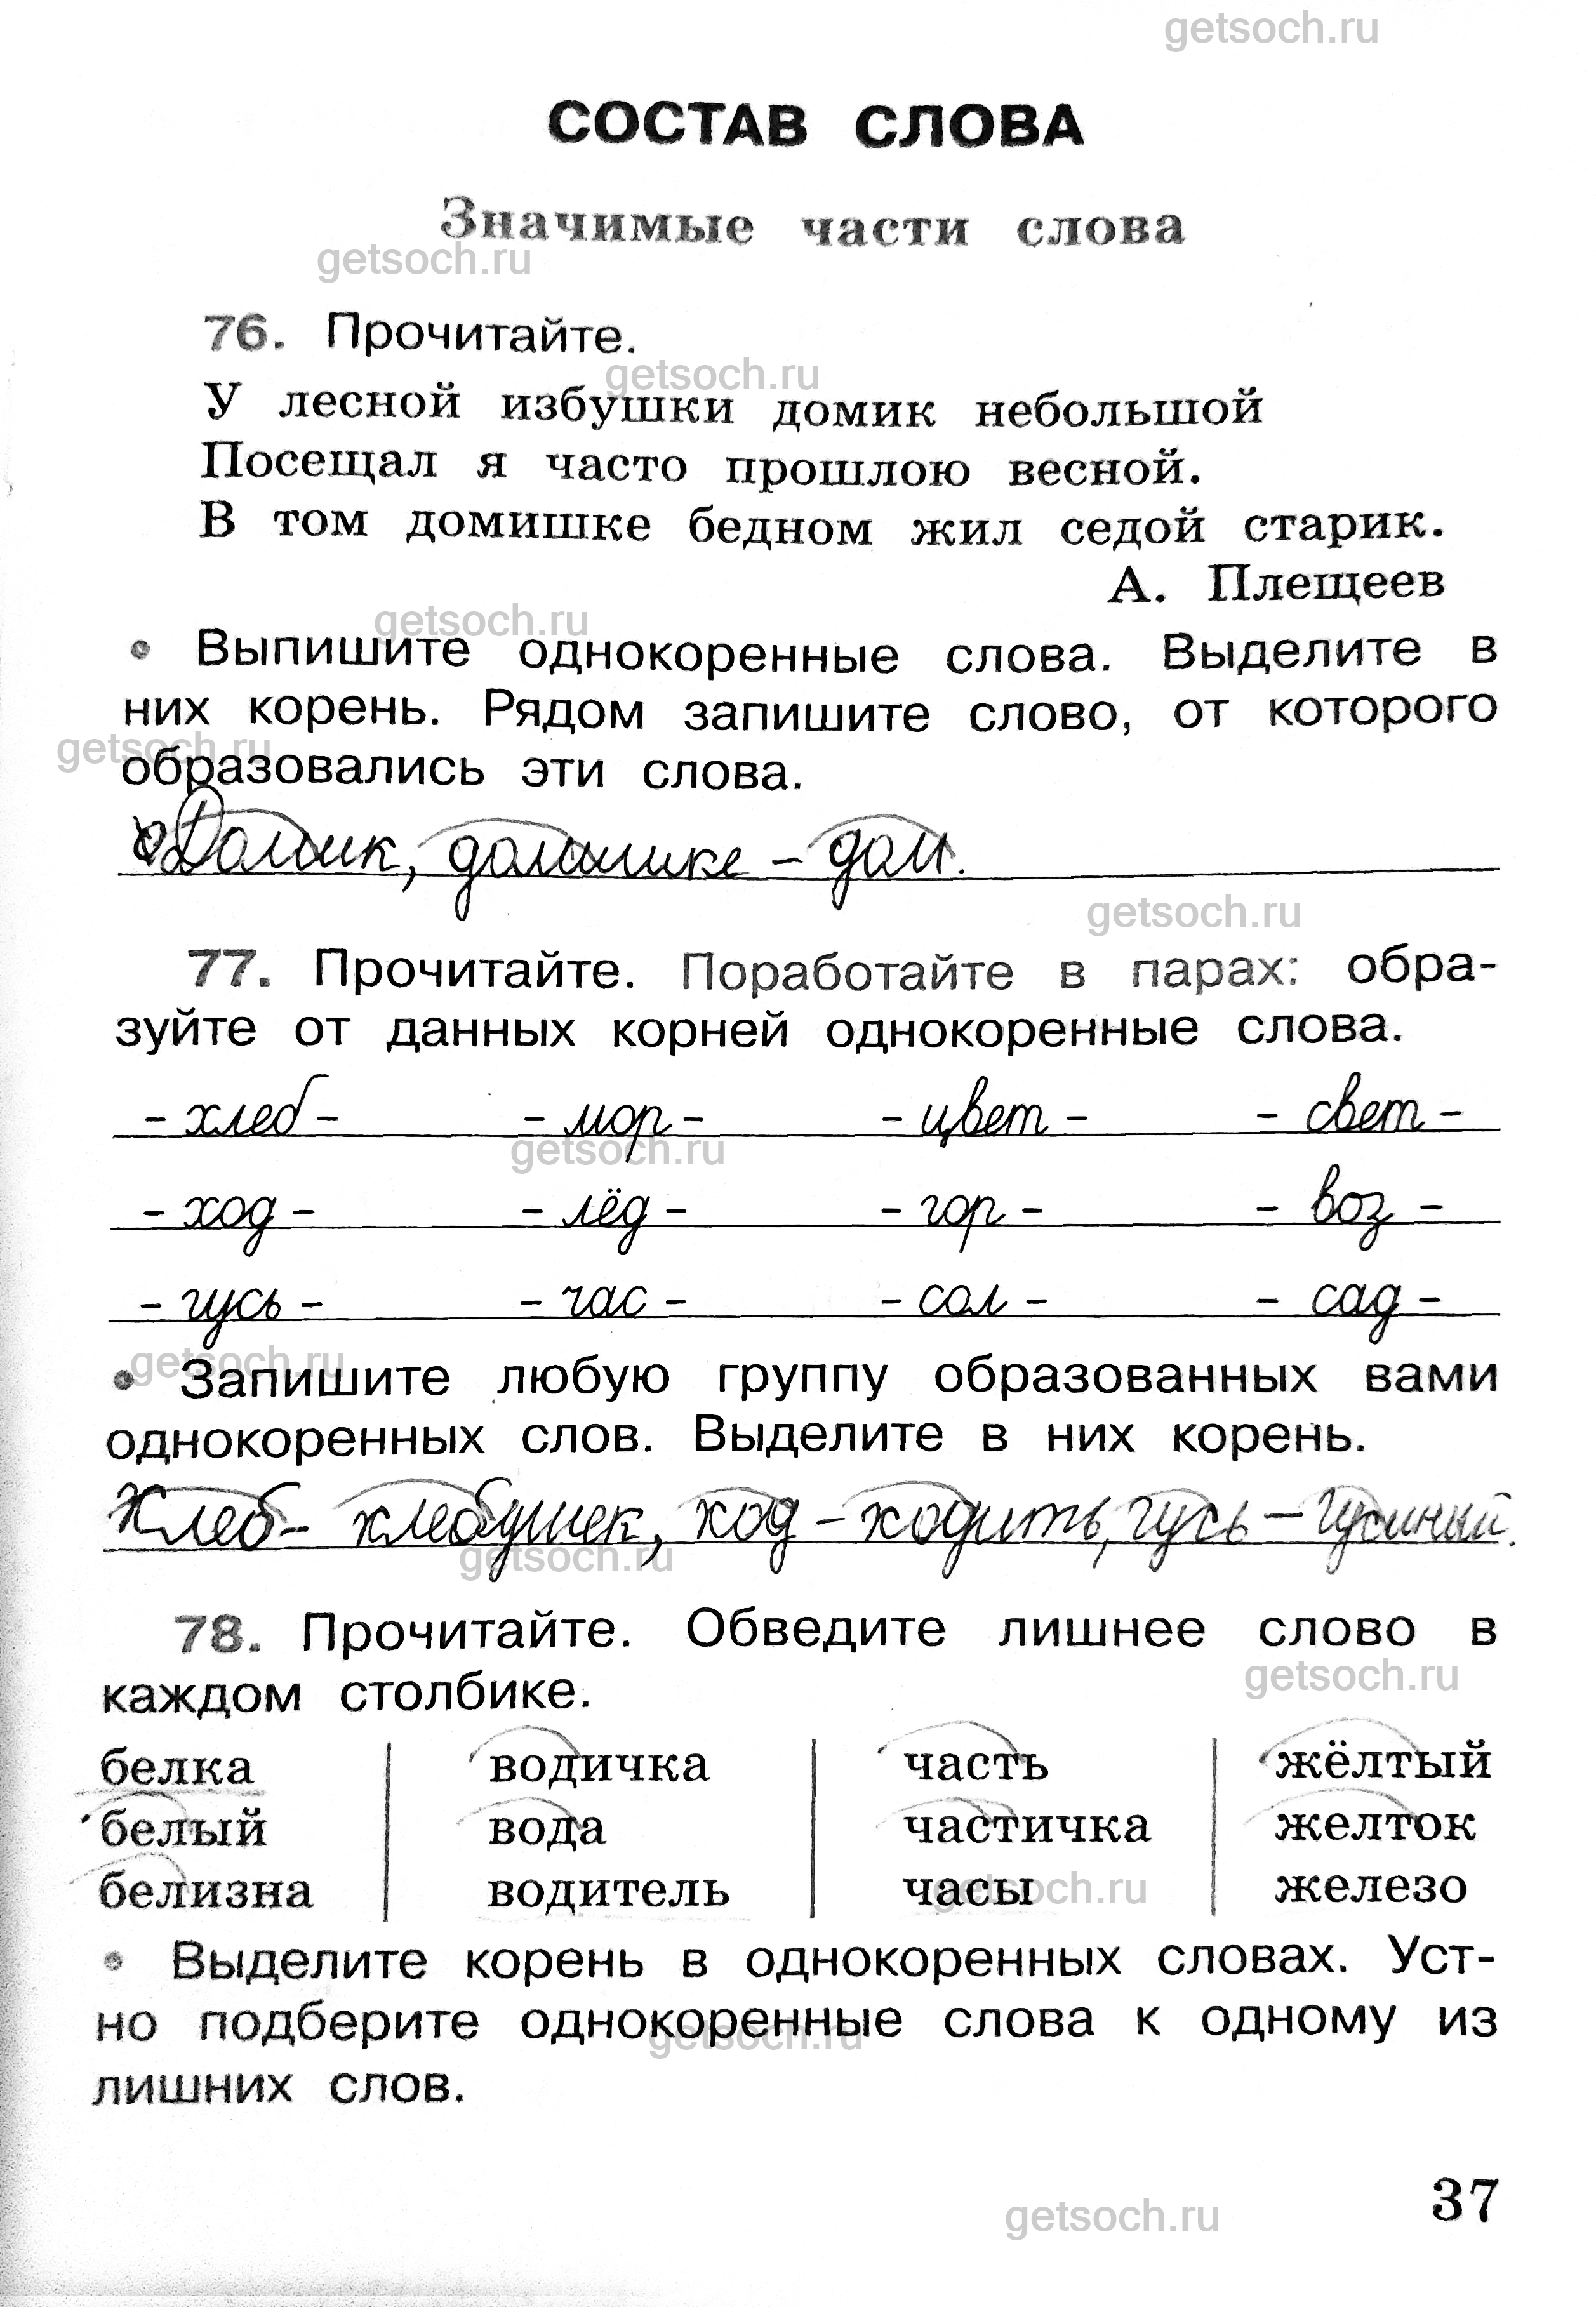 getsoch.ru
СОСТАВ СЛОВА
Значимые части слова
getsoch.ru
76. Прочитайте.
getsoch.ru
У лесной избушки домик небольшой
Посещал я часто прошлою весной.
В том домишке бедном жил седой старик.
А. Плещеев
getsoch.ru
• Выпишите однокоренные слова. Выделите в
них корень. Рядом запишите слово, от которого
getsoch.ru
образовались эти слова.
Домик, домишке – дом.
getsoch.ru
77. Прочитайте. Поработайте в парах: обра-
зуйте от данных корней однокоренные слова.
- хлеб - - мор - - цвет - - свет -
getsoch.ru
- ход - - лёд - - гор - - воз -
- гусь - - час - - сол - - сад -
getsoch.ru
• Запишите любую группу образованных вами
однокоренных слов. Выделите в них корень.
Хлеб – хлебушек, ход – ходить, гусь – гусиный.
getsoch.ru
78. Прочитайте. Обведите лишнее слово в
getsoch.ru
каждом столбике.
белка водичка часть жёлтый
белый вода частичка желток
белизна водитель часы железо
getsoch.ru
• Выделите корень в однокоренных словах. Уст-
но подберите однокоренные слова к одному из
getsoch.ru
лишних слов.
37
getsoch.ru